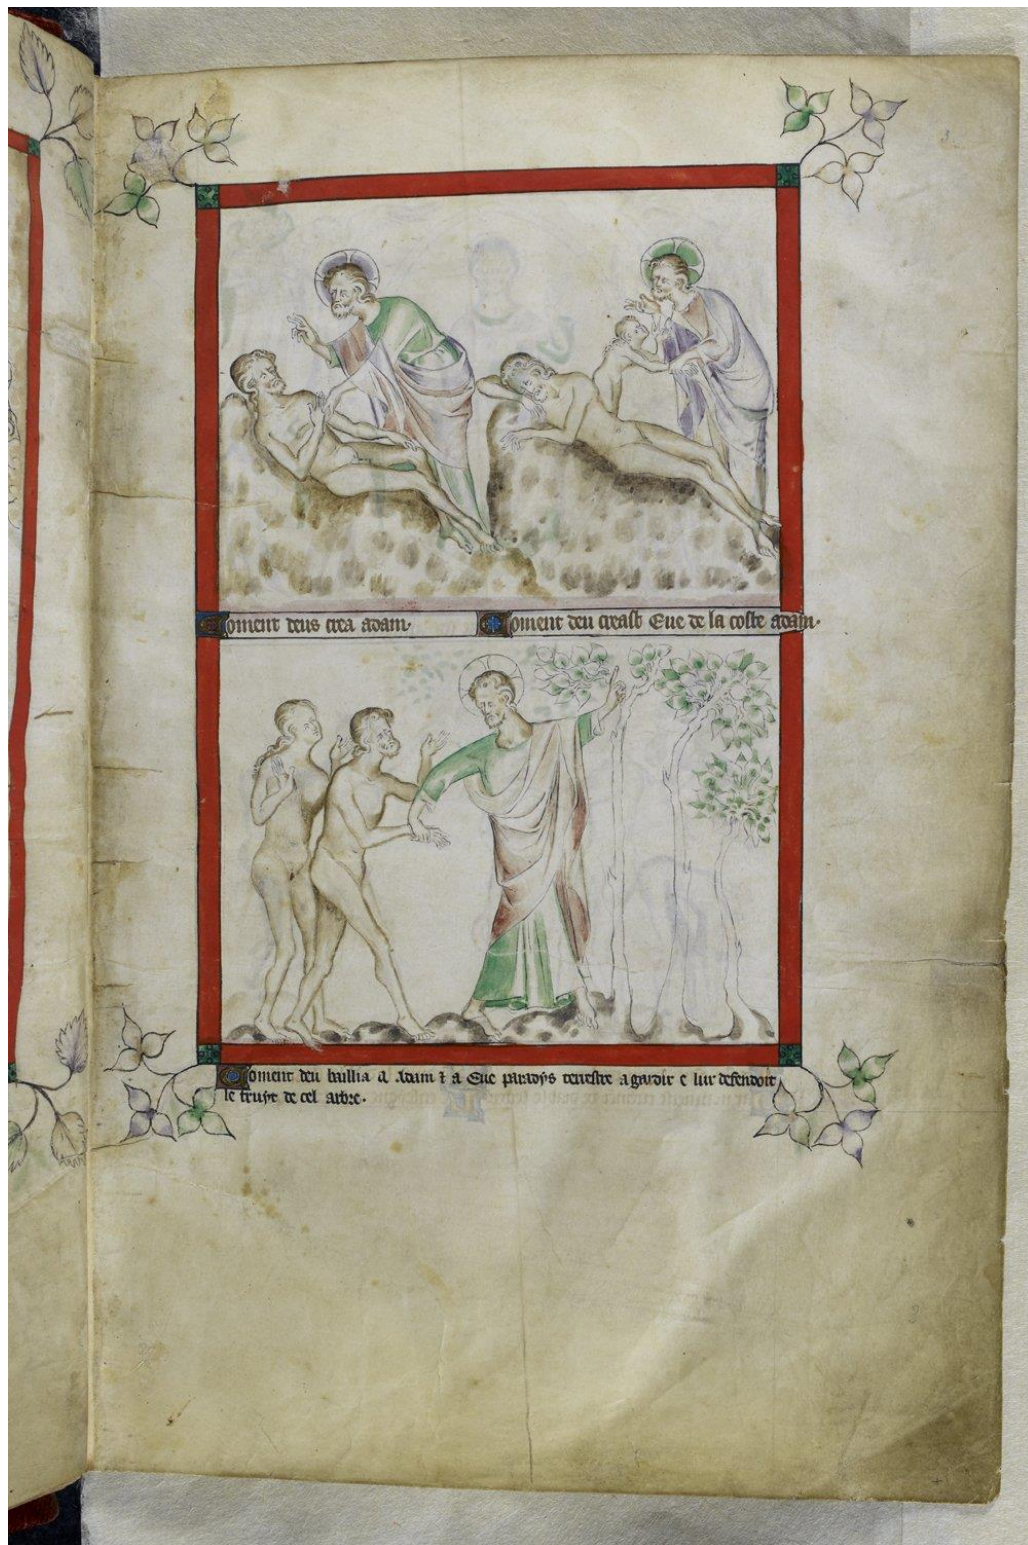 Coment deus crea adam·
Coment deu creast Eue de la coste adam·
Coment deu baillia a Adam ⁊ a Eue paradys terrestre a gardir e lur defendoit
le fruyt de cel arbre·